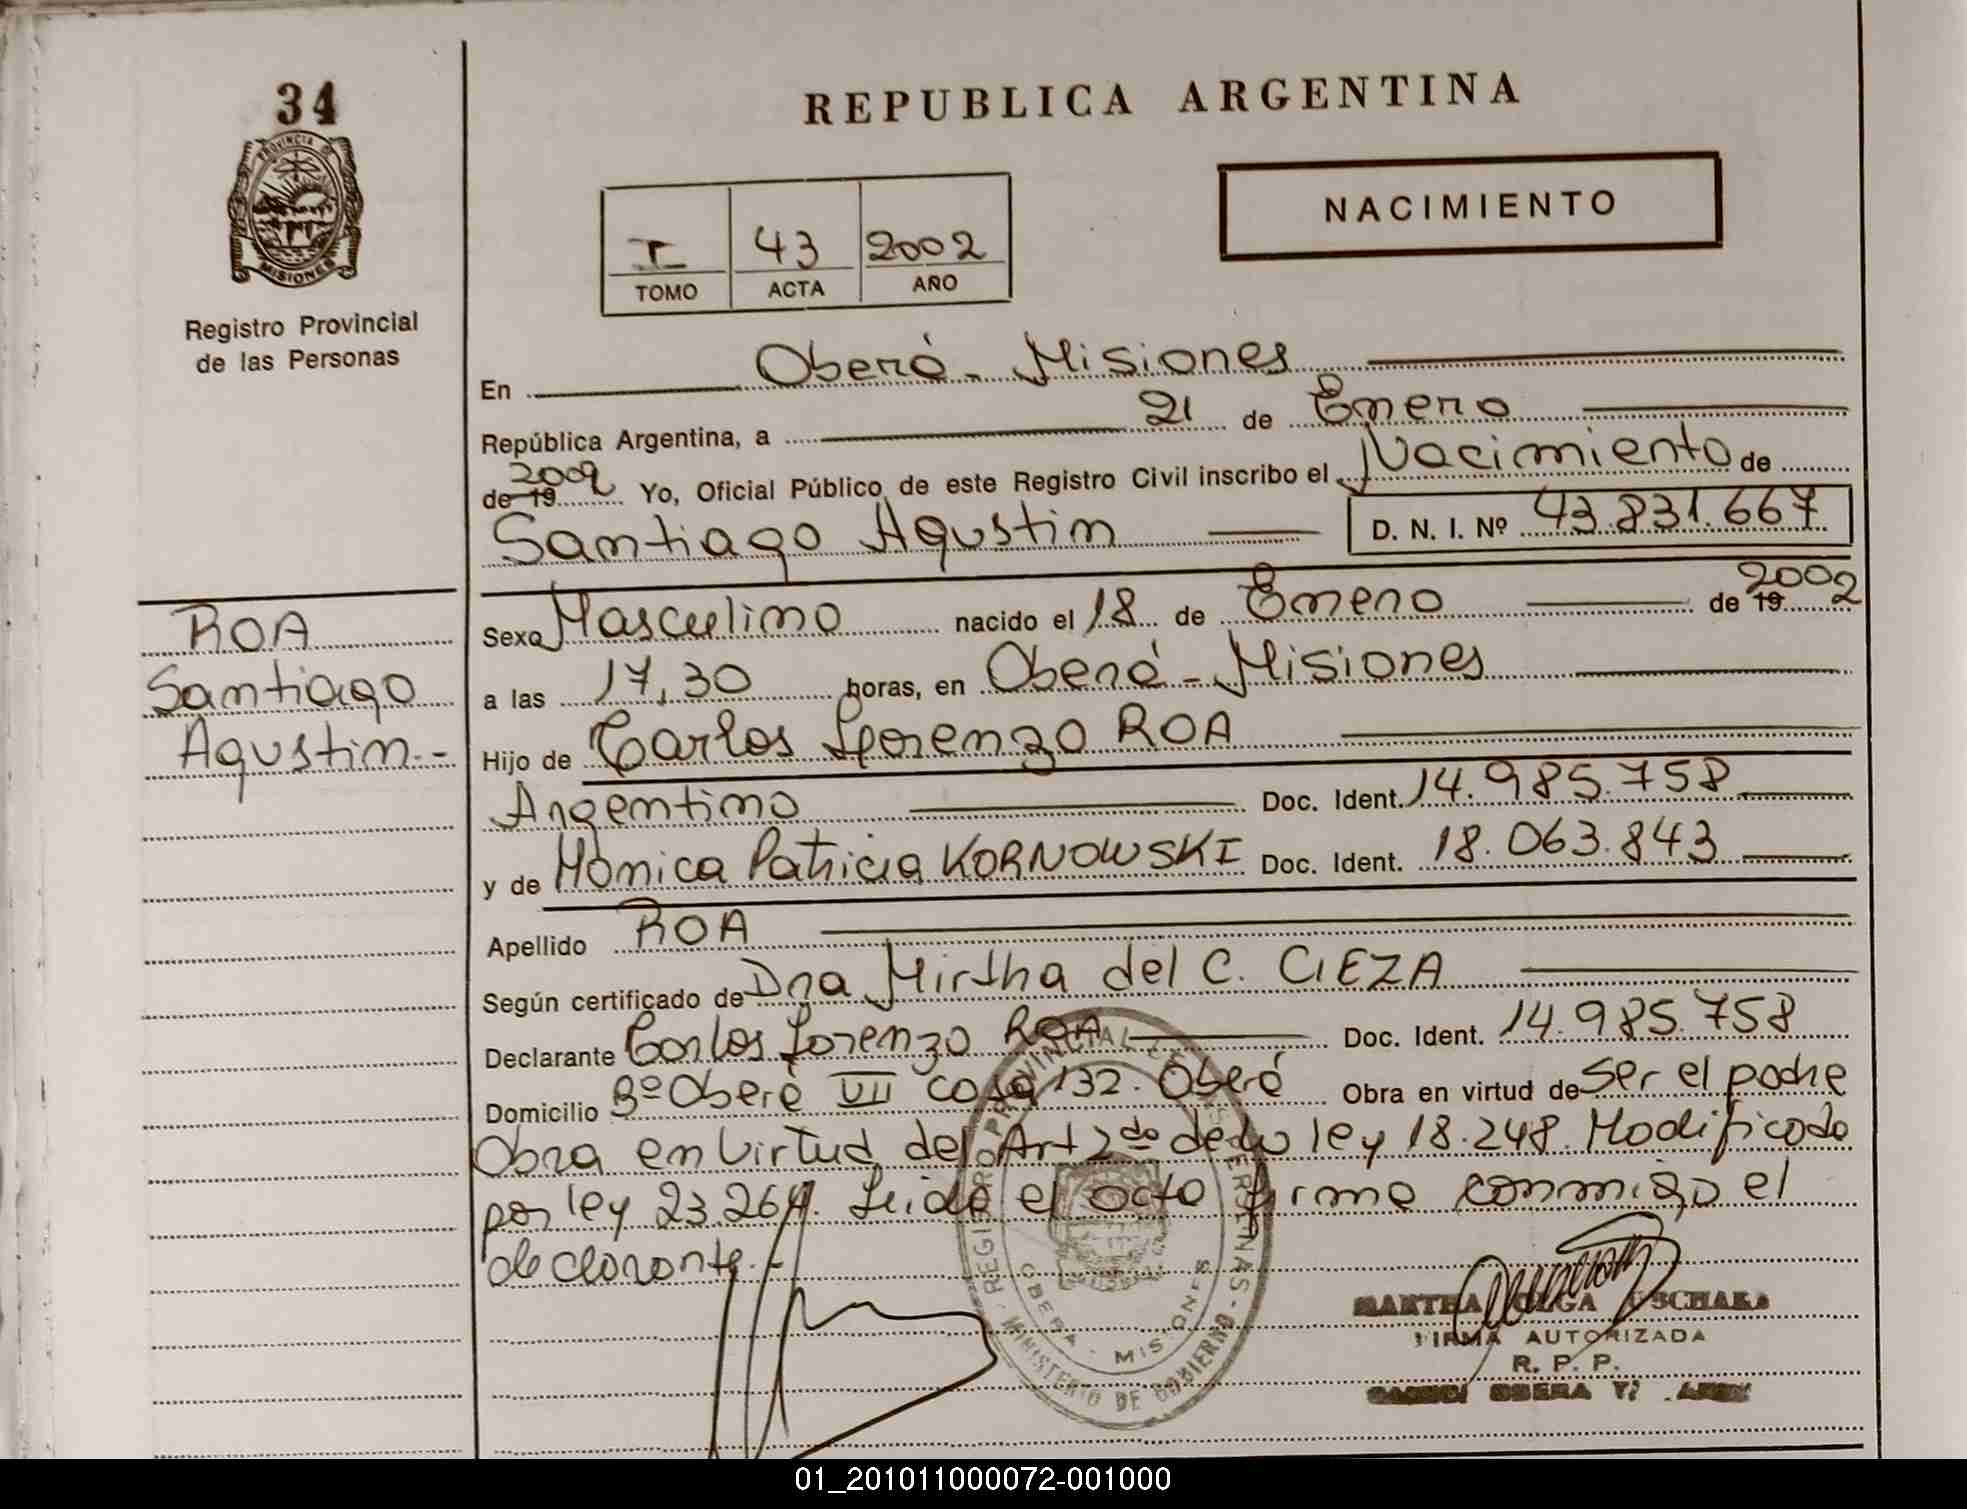 34
PROVINCIA DE
MISIONES
Registro Provincial
de las Personas
REPUBLICA ARGENTINA
NACIMIENTO
I 43 2002
TOMO ACTA AÑO
En Oberá - Misiones
República Argentina, a 21 de Enero
de 19 2002 Yo, Oficial Público de este Registro Civil inscribo el Nacimiento de
Santiago Agustin D. N. I. Nº 43.831.667
ROA
Santiago
Agustin.-
Sexo Masculino nacido el 18 de Enero de 19 2002
a las 17,30 horas, en Oberá - Misiones
Hijo de Carlos Lorenzo ROA
Argentino Doc. Ident. 14.985.758
y de Mónica Patricia KORNOWSKI Doc. Ident. 18.063.843
Apellido ROA
Según certificado de Dra Mirtha del C. CIEZA
Declarante Carlos Lorenzo ROA Doc. Ident. 14.985.758
Domicilio Bº Oberá VII casa 132. Oberá Obra en virtud de ser el padre
Obra en virtud del Art 2do de la ley 18.248. Modificada
por ley 23.264. Leida el acta firma conmigo el
declarante.-
REGISTRO PROVINCIAL DE LAS PERSONAS
OBERA - MISIONES
MINISTERIO DE GOBIERNO
MARTHA OLGA
FIRMA AUTORIZADA
R. P. P.
OBERA
01_201011000072-001000